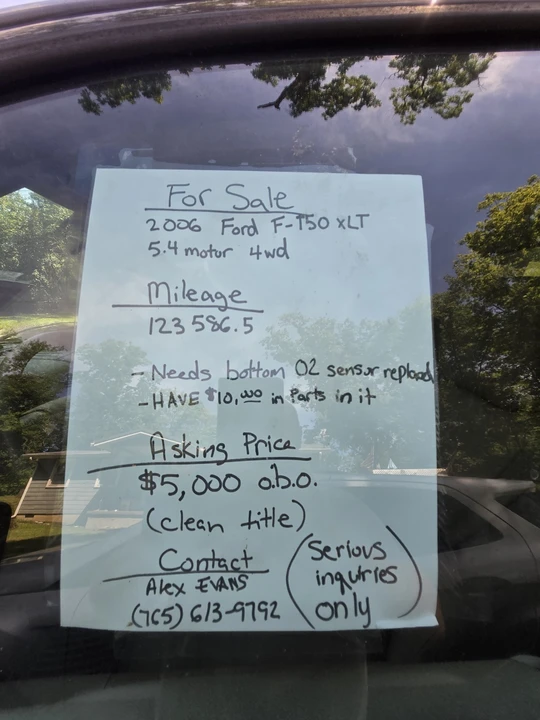 For Sale
2006 Ford F-150 XLT
5.4 motor 4wd
Mileage
123586.5
- Needs bottom O2 sensor replaced
- HAVE $10,000 in Parts in it
Asking Price
$5,000 o.b.o.
(clean title)
Contact
Alex EVANS
(765) 613-9792
(Serious
inquiries
only)